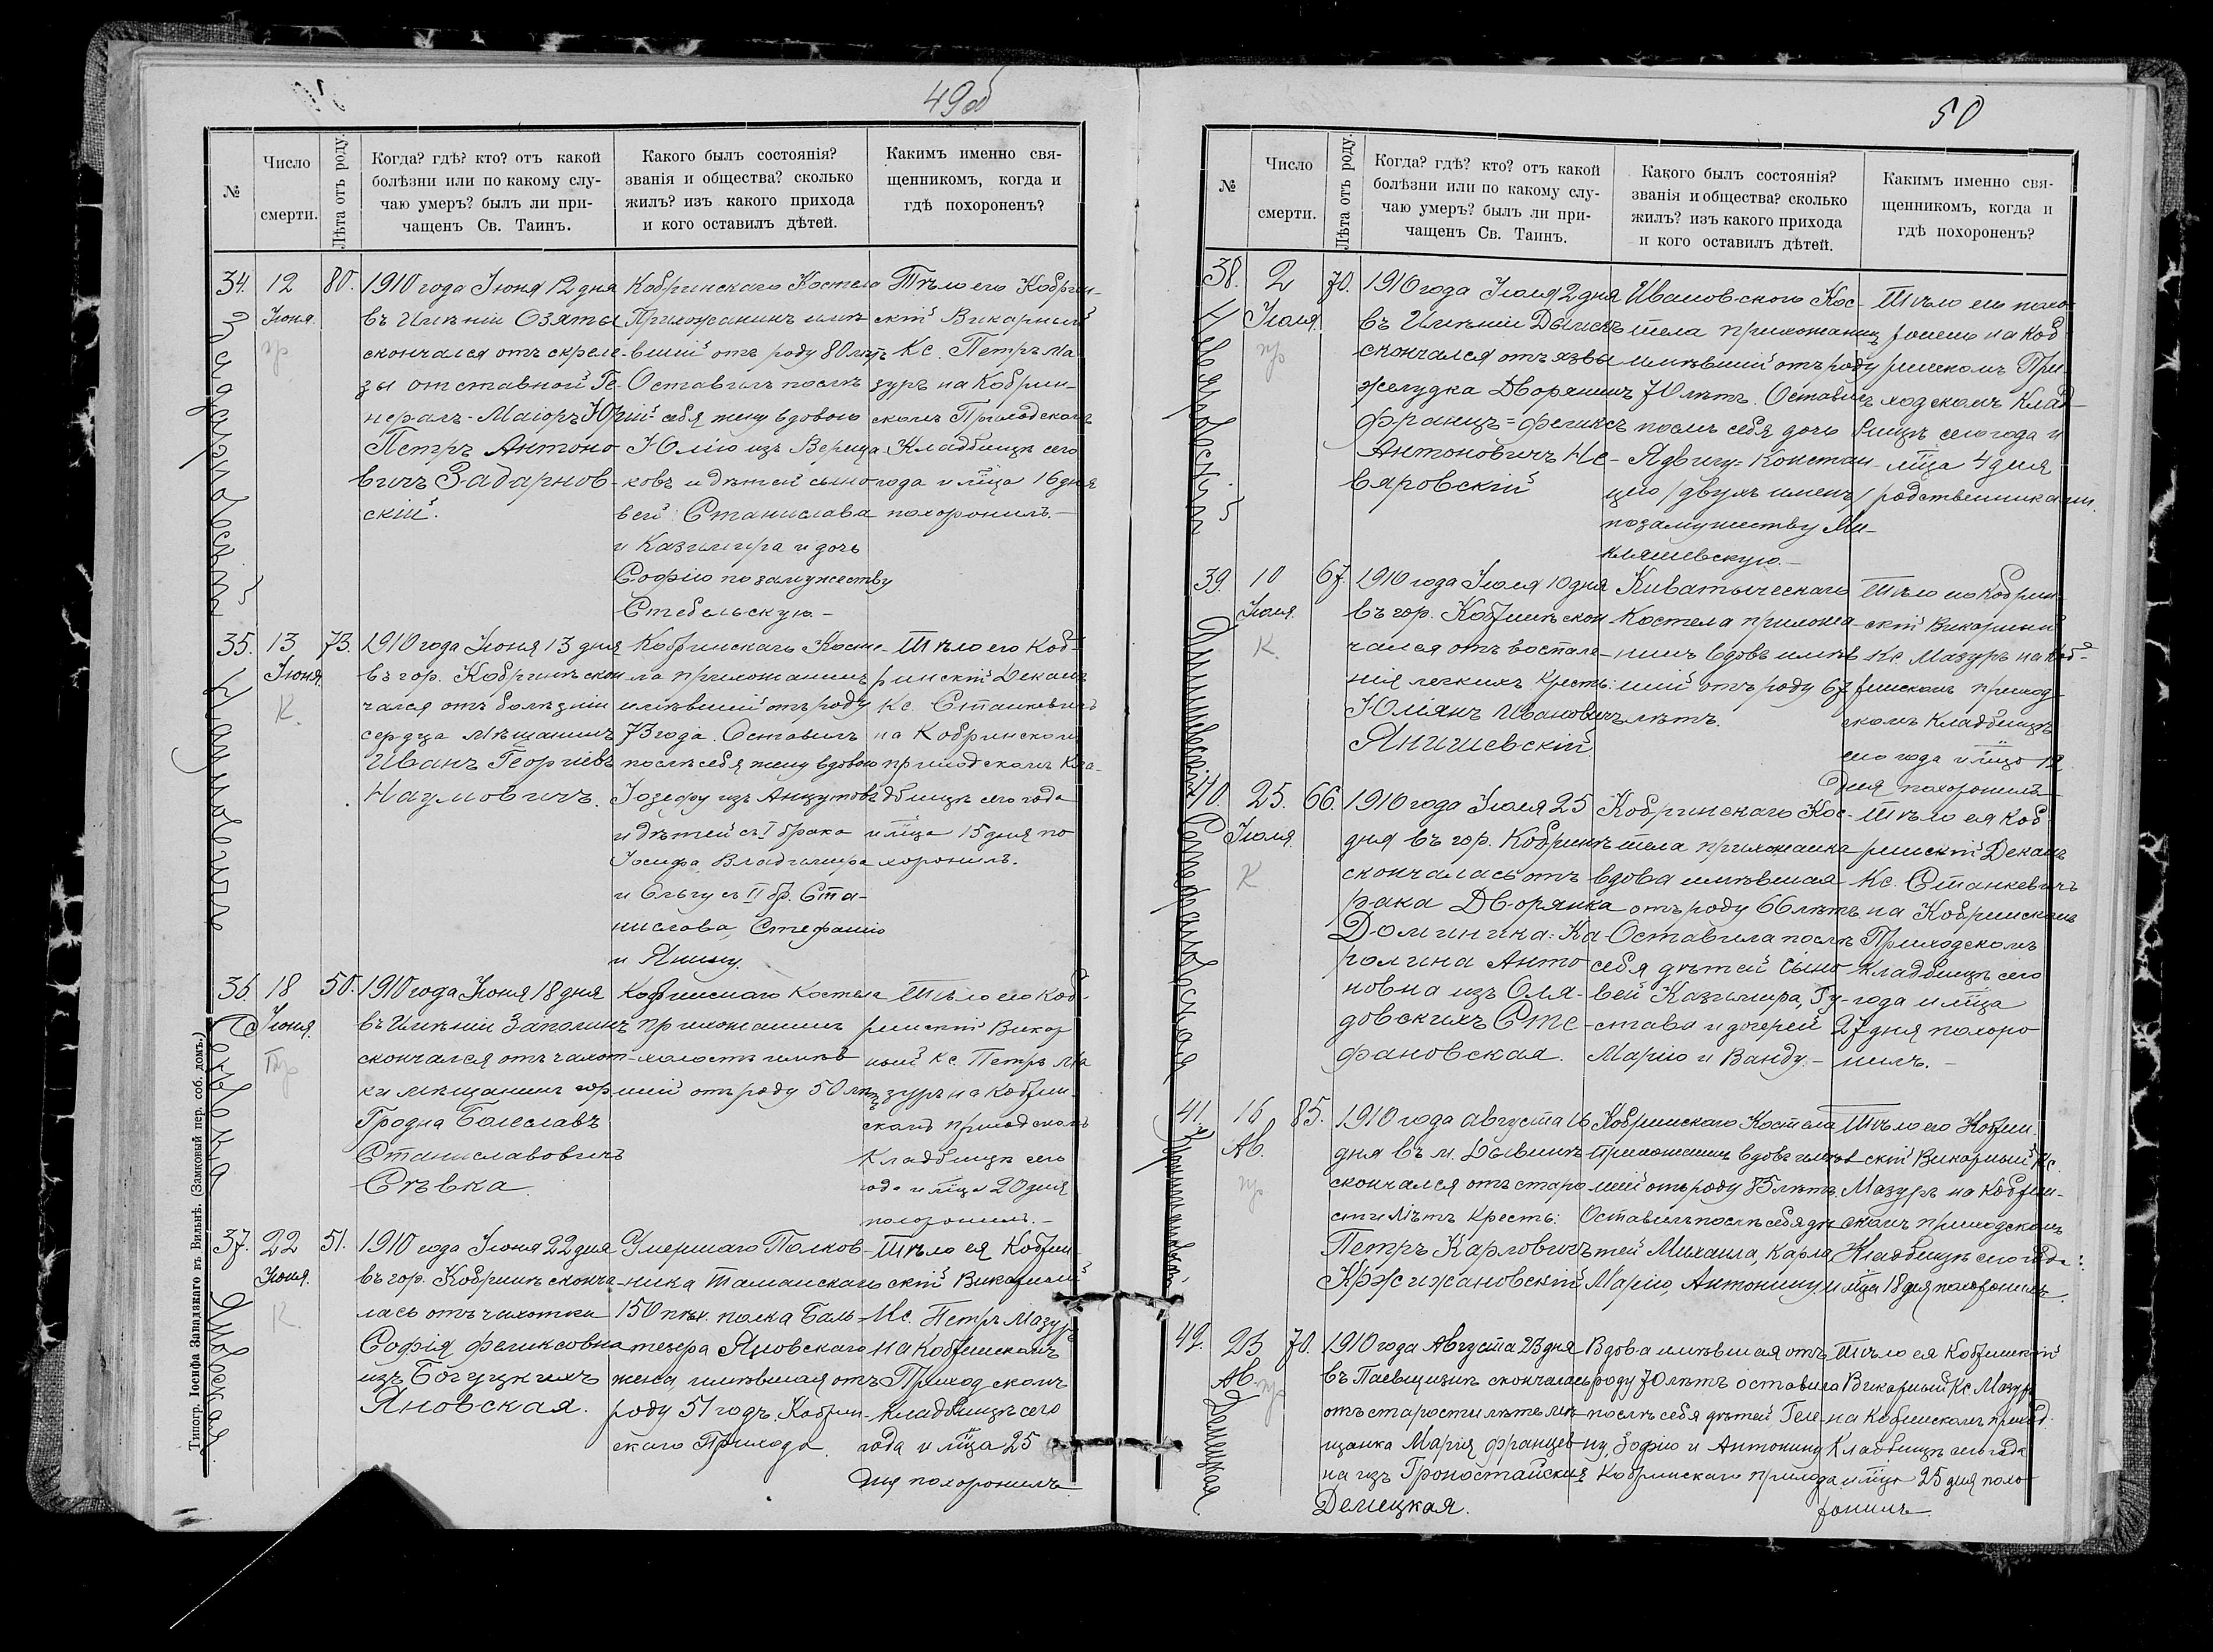 49об
№
Число
смерти.
Лѣта отъ роду.
Когда? гдѣ? кто? отъ какой
болѣзни или по какому слу-
чаю умеръ? былъ ли при-
чащенъ Св. Таинъ.
Какого былъ состоянія?
званія и общества? сколько
жилъ? изъ какого прихода
и кого оставилъ дѣтей.
Какимъ именно свя-
щенникомъ, когда и
гдѣ похороненъ?
34.
Задарновскій
12
Іюня.
пр
80.
1910 года Іюня 12 дня
въ Имѣніи Озяты
скончался отъ скреле-
зы отставной Ге-
нералъ-Маіоръ Юрій
Петръ Антоно-
вичъ Задарнов-
скій.
Кобринскаго Костела
Прихожанинъ имѣ-
вшій отъ роду 80 лѣтъ
Оставилъ послѣ
себя жену вдовою
Юлію изъ Вереща-
ковъ и дѣтей сыно-
вей: Станислава
и Казимира и дочь
Софію по замужеству
Стебельскую.-
Тѣло его Кобрин-
скій Викарный
Кс. Петръ Ма-
зуръ на Кобрин-
скомъ Приходскомъ
Кладбищѣ сего
года и м̃ца 16 дня
похоронилъ.-
35.
Наумовичъ
13
Іюня.
К.
73.
1910 года Іюня 13 дня
въ гор. Кобринѣ скон-
чался отъ болѣзни
сердца мѣщанинъ
Иванъ Георгіевъ
Наумовичъ.
Кобринскаго Косте-
ла прихожанинъ
имѣвшій отъ роду
73 года. Оставилъ
послѣ себя жену вдовою
Іозефу изъ Анцутовъ
и дѣтей съ I брака
Іосифа, Владимира
и Ольгу съ II бр. Ста-
нислава, Стефанію
и Янину.
Тѣло его Коб-
ринскій Деканъ
Кс. Станкевичъ
на Кобринскомъ
приходскомъ Кла-
дбищѣ сего года
и м̃ца 15 дня по-
хоронилъ.
36.
Сѣвка
18
Іюня.
Пр
50.
1910 года Іюня 18 дня
въ Имѣніи Заполинъ
скончался отъ чахот-
ки мѣщанинъ гор
Гродна Болеславъ
Станиславовичъ
Сѣвка
Кобринскаго Костела
прихожанинъ
холостъ имѣв-
шій отъ роду 50 лѣтъ
Тѣло его Коб-
ринскій Викар-
ный Кс. Петръ Ма-
зуръ на Кобрин-
скомъ приходскомъ
Кладбищѣ сего
года и м̃ца 20 дня
похоронилъ.-
37.
Яновская.
22
Іюня.
К.
51.
1910 года Іюня 22 дня
въ гор. Кобринѣ сконча-
лась отъ чахотки
Софія Феликсовна
изъ Богуцкихъ
Яновская.
Умершаго Полков-
ника Таманскаго
150 пѣх. полка Баль-
тезера Яновскаго
жена, имѣвшая отъ
роду 51 годъ, Кобрин-
скаго Прихода
Тѣло ея Кобрин-
скій Викарный
Кс. Петръ Мазуръ
на Кобринскомъ
Приходскомъ
Кладбищѣ сего
года и м̃ца 25
дня похоронилъ
Типогр. Іосифа Завадзкаго въ Вильнѣ. (Замковый пер. соб. домъ.)
50
№
Число
смерти.
Лѣта отъ роду.
Когда? гдѣ? кто? отъ какой
болѣзни или по какому слу-
чаю умеръ? былъ ли при-
чащенъ Св. Таинъ.
Какого былъ состоянія?
званія и общества? сколько
жилъ? изъ какого прихода
и кого оставилъ дѣтей.
Какимъ именно свя-
щенникомъ, когда и
гдѣ похороненъ?
38.
Невяровскій
2
Іюля.
пр
70.
1910 года Іюля 2 дня
въ Имѣніи
скончался отъ язвы
желудка Дворянинъ
Францъ=Феликсъ
Антоновичъ Не-
вяровскій
Ивановскаго Кос-
тела прихожанинъ
имѣвшій отъ роду
70 лѣтъ. Оставилъ
послѣ себя дочь
Ядвигу=Констан-
цію (двухъ именъ)
по замужеству Ми-
кляшевскую.-
Тѣло его похо-
ронено на Коб-
ринскомъ При-
ходскомъ Клад-
бищѣ сего года и
м̃ца 4 дня
родственниками.
39.
Янишевскій.
10
Іюля
К.
67.
1910 года Іюля 10 дня
въ гор. Кобринѣ скон-
чался отъ воспале-
нія легкихъ кресть:
Юліянъ Ивановичъ
Янишевскій
Киватыческаго
Костела прихожа-
нинъ вдовъ имѣв-
шій отъ роду 67
лѣтъ.
Тѣло его Кобрин-
скій Викарный
Кс. Мазуръ на Коб-
ринскомъ приход-
скомъ Кладбищѣ
сего года и м̃ца 12
дня похоронилъ
40.
Стефановская
25.
Іюля.
К
66.
1910 года Іюля 25
дня въ гор. Кобринѣ
скончалась отъ
рака Дворянка
Доминика: Ка-
ролина Анто-
новна изъ Оля-
довскихъ Сте-
фановская.
Кобринскаго Кос-
тела прихожанка
вдова имѣвшая
отъ роду 66 лѣтъ
Оставила послѣ
себя дѣтей сыно-
вей Казимира, Гу-
става и дочерей
Марію и Ванду.-
Тѣло ея Коб-
ринскій Деканъ
Кс. Станкевичъ
на Кобринскомъ
Приходскомъ
Кладбищѣ сего
года и м̃ца
27 дня похоро-
нилъ.-
41.
Кржижановскій
16
Ав.
пр
85.
1910 года августа 16
дня въ м. Дывинѣ
скончался отъ старо-
сти лѣтъ Кресть:
Петръ Карловичъ
Кржижановскій
Кобринскаго Костела
прихожанинъ вдовъ имѣв-
шій отъ роду 85 лѣтъ.
Оставилъ послѣ себя дѣ-
тей Михаила, Карла,
Марію, Антонину
Тѣло его Кобрин-
скій Викарный Кс.
Мазуръ на Кобрин-
скомъ приходскомъ
Кладбищѣ сего года
и м̃ца 18 дня похоронилъ.
42.
Демецкая
23
Ав.
пр
70.
1910 года Августа 23 дня
въ скончалась
отъ старости лѣтъ мѣ-
щанка Марія Францев-
на изъ Гроностайскихъ
Демецкая.
Вдова имѣвшая отъ
роду 70 лѣтъ оставила
послѣ себя дѣтей Геле-
ну, Зофію и Антонину
Кобринскаго прихода
Тѣло ея Кобринскій
Викарный Кс. Мазуръ
на Кобринскомъ приход.
Кладбищѣ сего года
и м̃ца 25 дня похо-
ронилъ